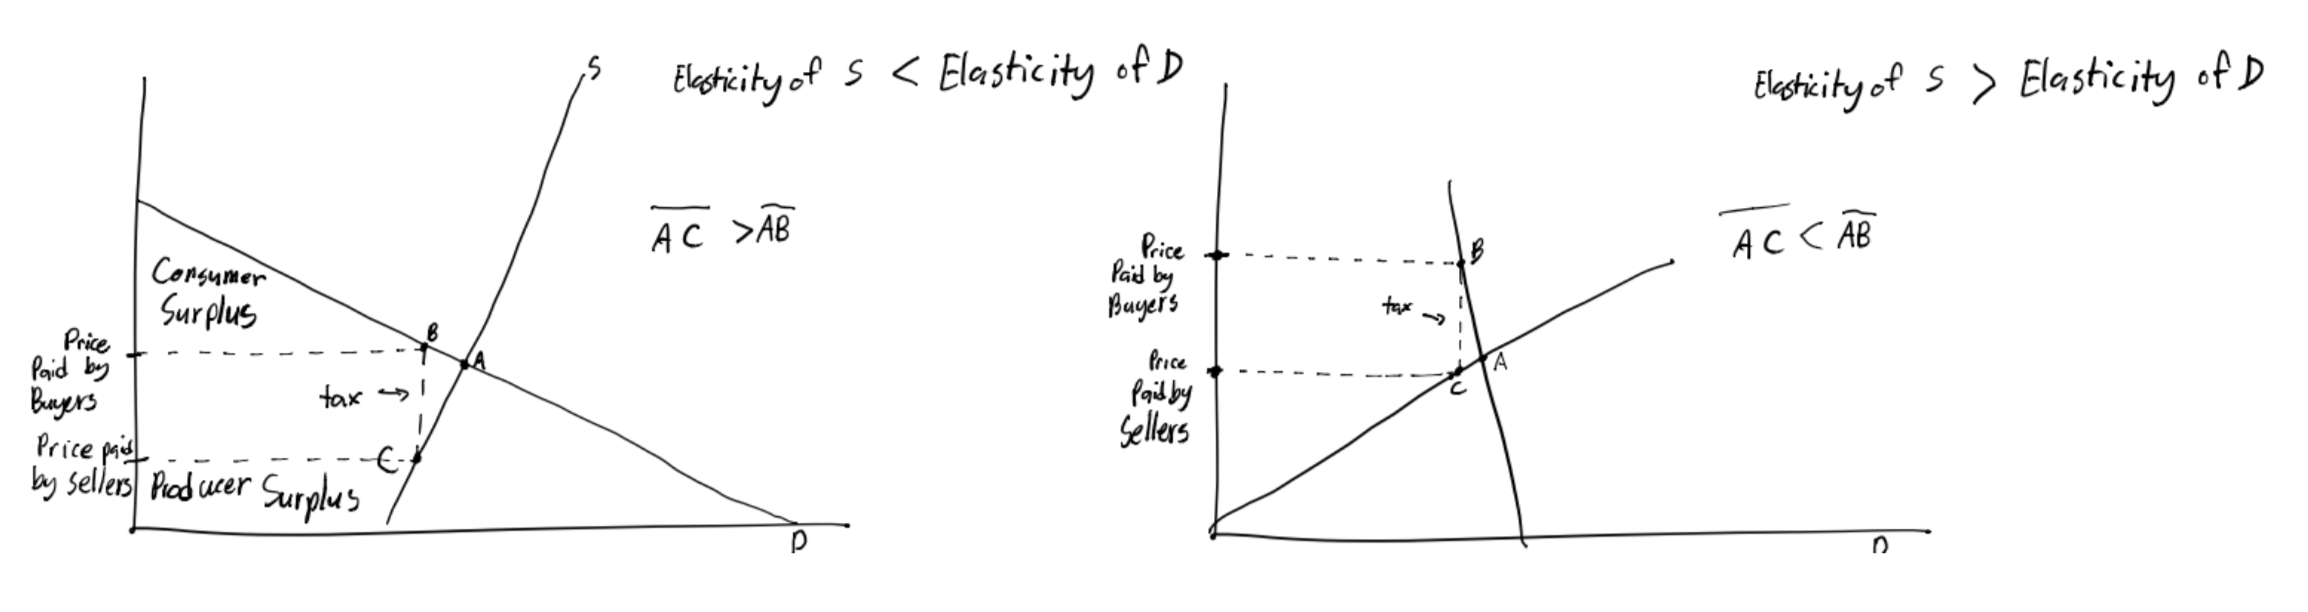 S
Elasticity of S < Elasticity of D
AC > AB
Consumer
Surplus
B
A
Price
Paid by
Buyers
tax →
Price paid
by sellers
C
Producer Surplus
D
Elasticity of S > Elasticity of D
AC < AB
Price
Paid by
Buyers
B
tax →
A
Price
Paid by
Sellers
C
D